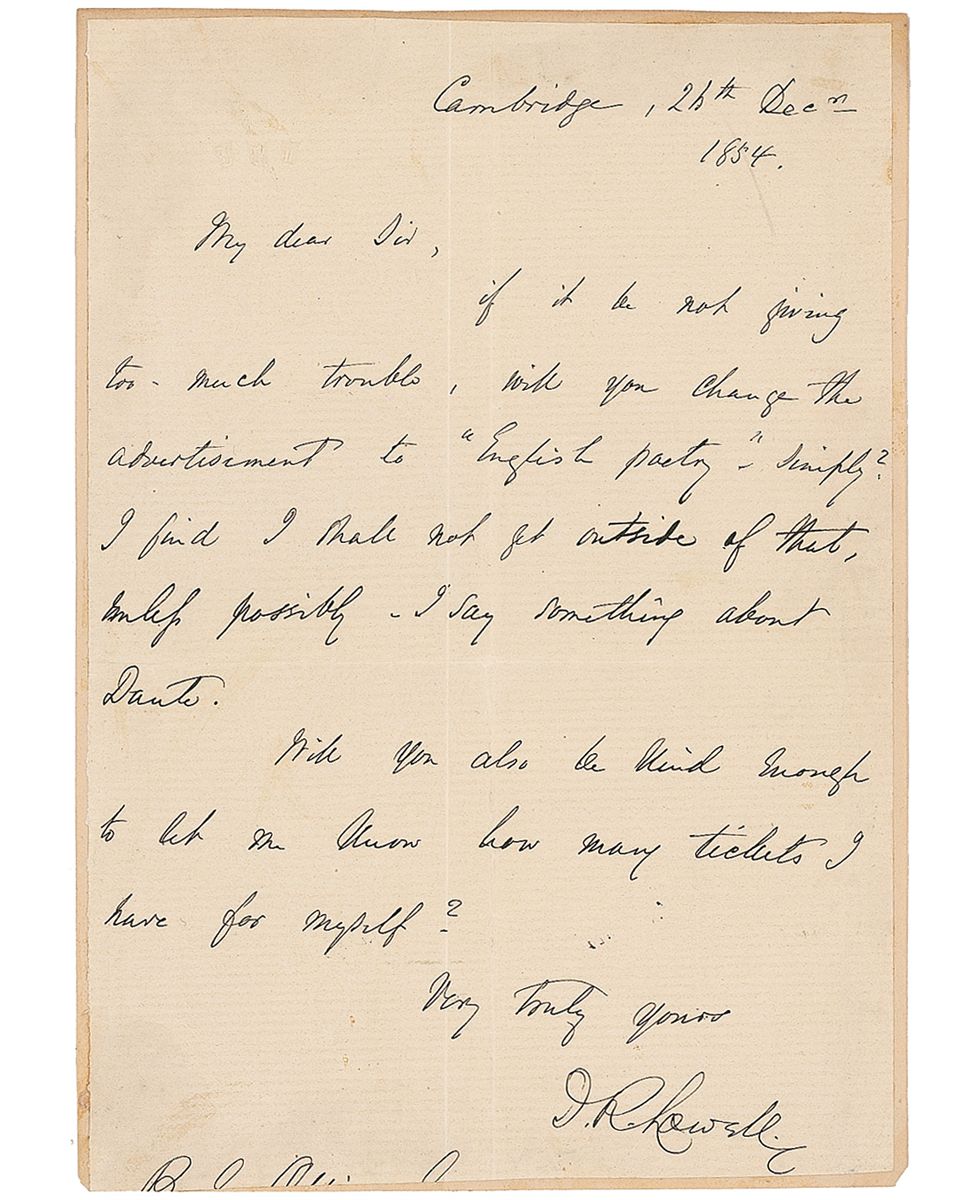 Cambridge, 26th Decr
1854.
My dear Sir,
if it be not giving
too much trouble, will you change the
advertisement to "English poetry" simply?
I find I shall not get outside of that,
unless possibly I say something about
Dante.
Will you also be kind enough
to let me know how many tickets I
have for myself?
Very truly yours
J. R. Lowell.